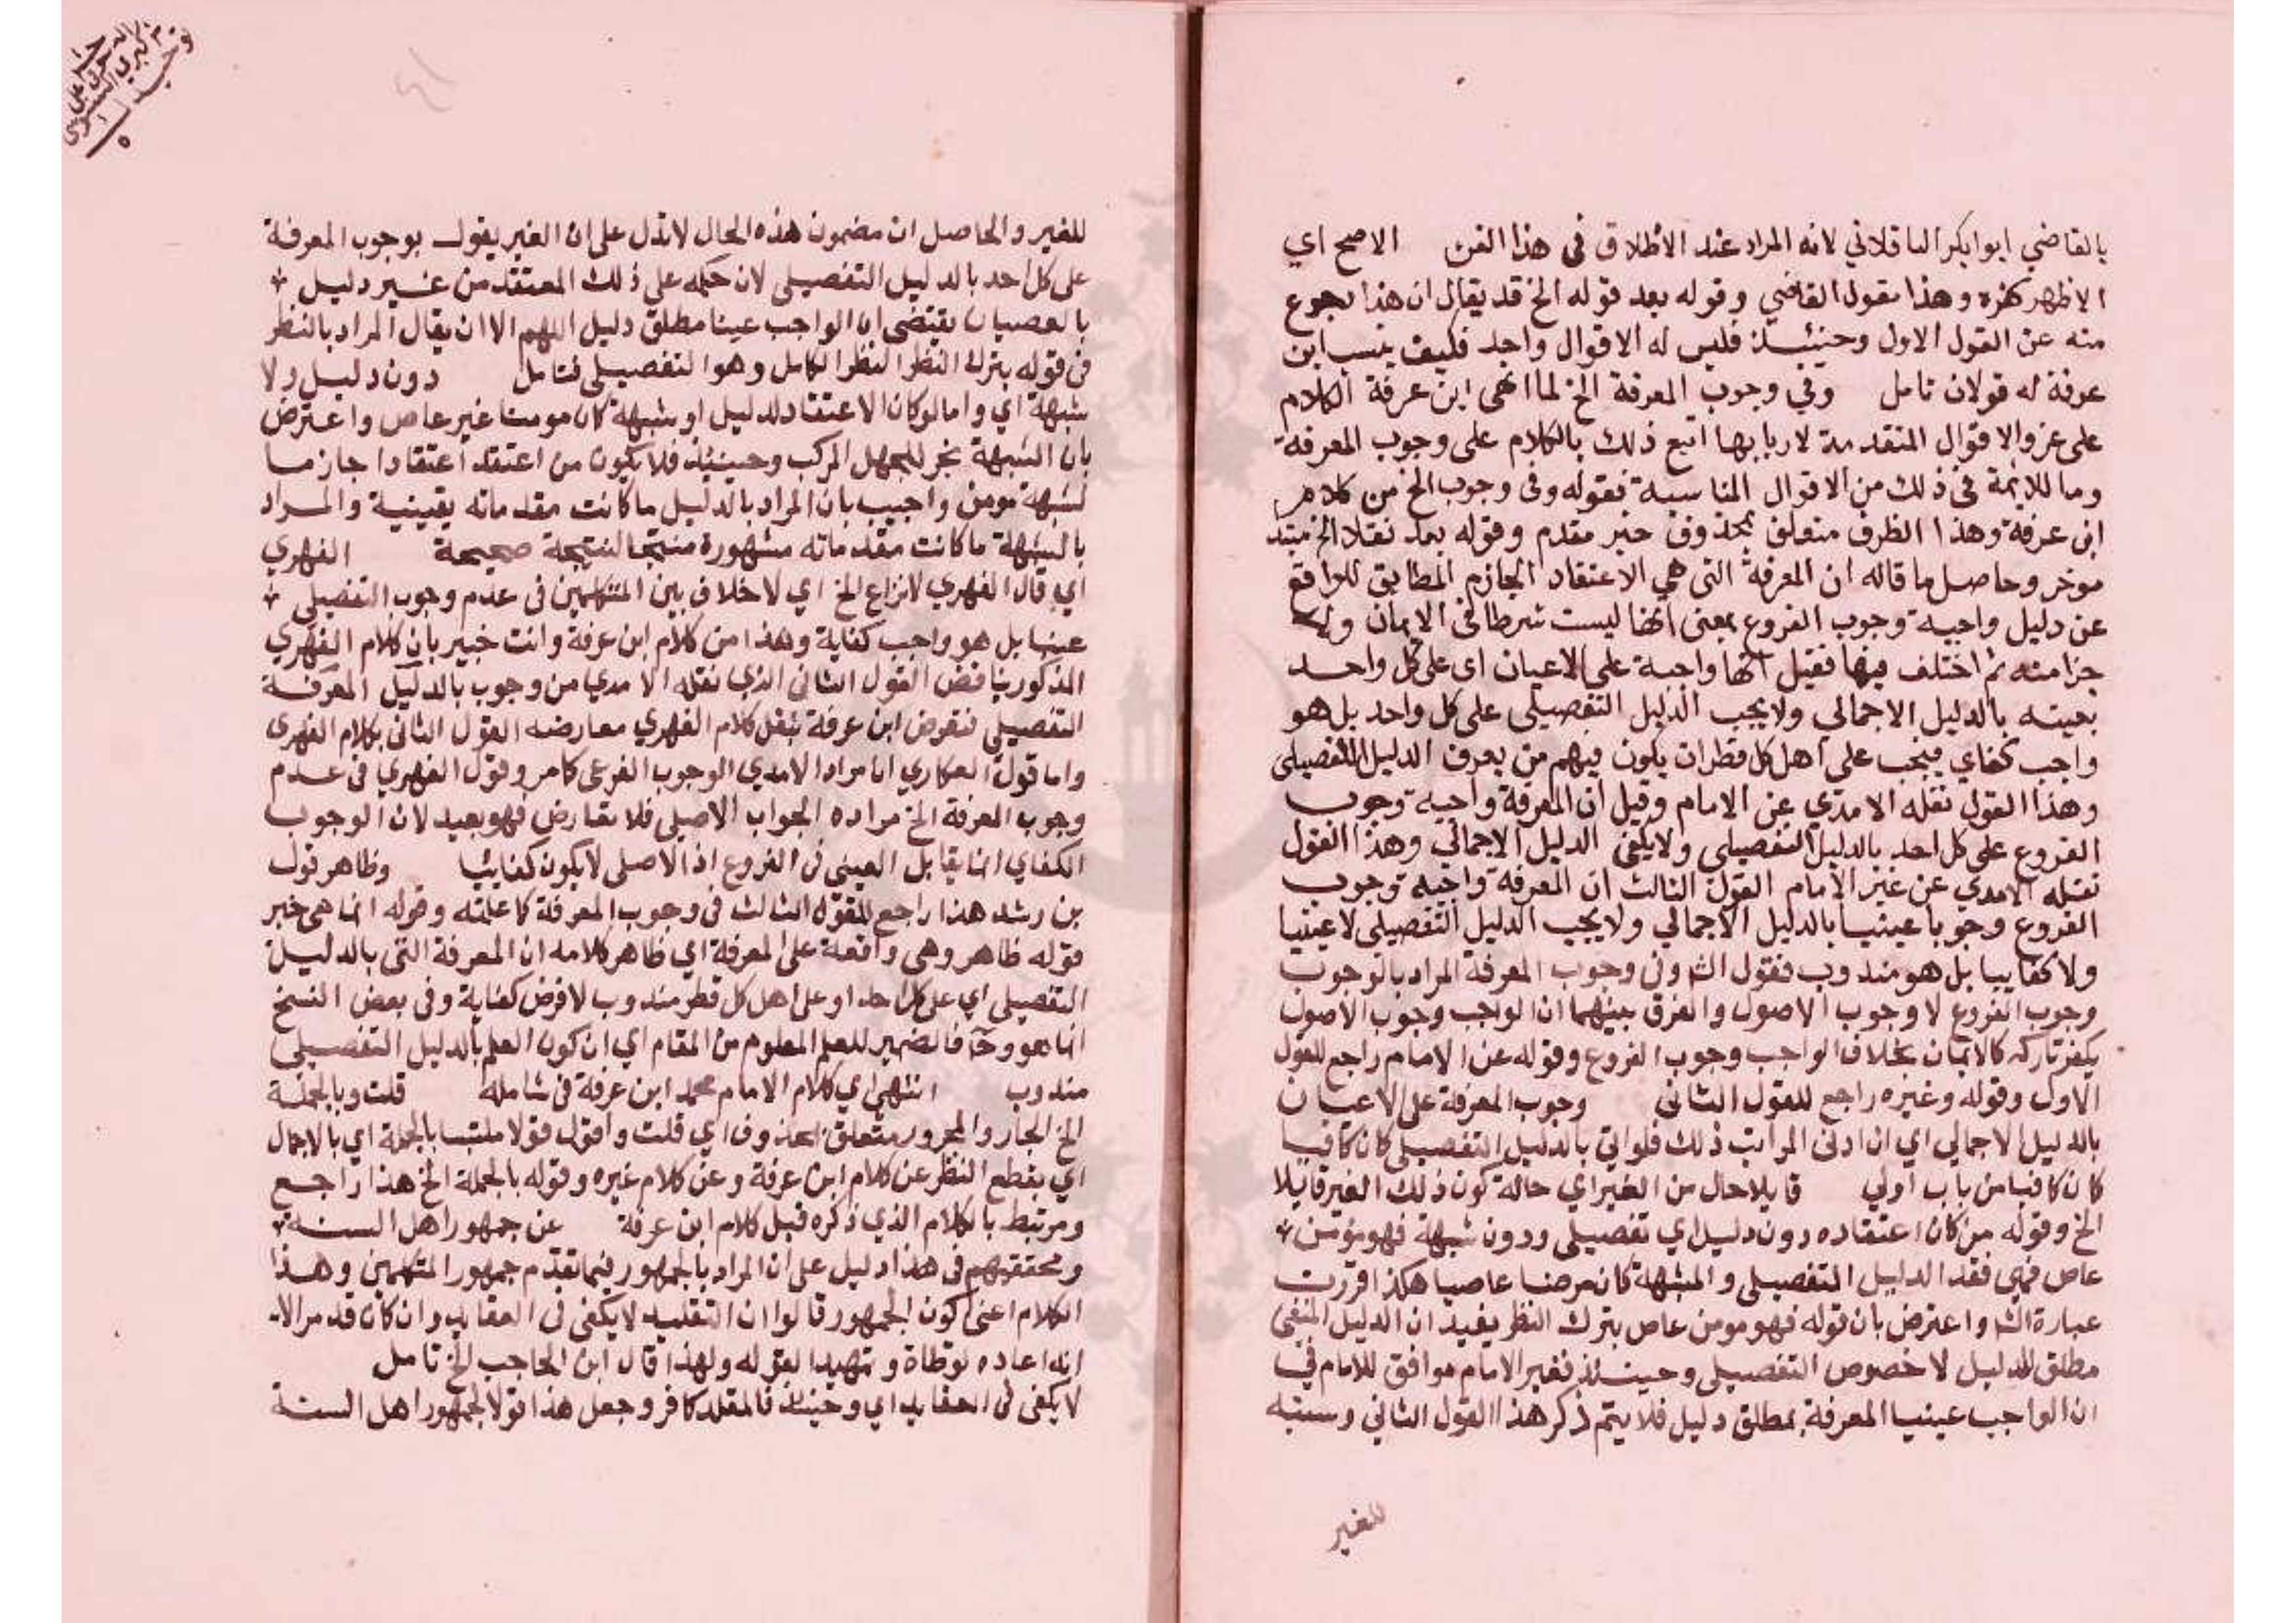 بالقاضي ابوابكر الباقلاني لانه المراد عند الاطلاق في هذا الفن الاصح اي
الاظهر كفره وهذا مقول القاضي وقوله بعد قوله الخ قد يقال ان هذا رجوع
منه عن القول الاول وحينئذ فليس له الا قوال واحد فكيف ينسب ابن
عرفة له قولان تامل وفي وجوب المعرفة الخ لما انهى ابن عرفة الكلام
على عزو الاقوال المتقدمة لاربابها اتبع ذلك بالكلام على وجوب المعرفة
وما للائمة في ذلك من الاقوال المناسبة فقوله وفي وجوب الخ من كلام
ابن عرفة وهذا الظرف متعلق بمحذوف خبر مقدم وقوله بعد نقلا الخ مبتد
موخر وحاصل ما قاله ان المعرفة التي هي الاعتقاد الجازم المطابق للواقع
عن دليل واجبة وجوب الفروع بمعنى انها ليست شرطا في الايمان ولا
جزا منه ثم اختلف فيها فقيل انها واجبة على الاعيان اي على كل واحد
بعينه بالدليل الاجمالي ولا يجب الدليل التفصيلي على كل واحد بل هو
واجب كفاي فيجب على اهل كل قطر ان يكون فيهم من يعرف الدليل التفصيلي
وهذا القول نقله الامدي عن الامام وقيل ان المعرفة واجبة وجوب
الفروع على كل احد بالدليل التفصيلي ولا يكفي الدليل الاجمالي وهذا القول
نقله الامدي عن غير الامام القول الثالث ان المعرفة واجبة وجوب
الفروع وجوبا عينيا بالدليل الاجمالي ولا يجب الدليل التفصيلي لا عينيا
ولا كفاييا بل هو مندوب فقول الش وفي وجوب المعرفة المراد بالوجوب
وجوب الفروع لا وجوب الاصول والفرق بينهما ان الواجب وجوب الاصول
يكفر تاركه كالايمان بخلاف الواجب وجوب الفروع وقوله عن الامام راجع للقول
الاول وقوله وغيره راجع للقول الثاني وجوب المعرفة على الاعيان
بالدليل الاجمالي اي ان ادنى المراتب ذلك فلو اتي بالدليل التفصيلي كان كافيا
كان كافيا من باب اولي قايلا حال من الغير اي حالة كون ذلك الغير قايلا
الخ وقوله من كان اعتقاده دون دليل اي تفصيلي ودون شبهة فهو مؤمن
عاص فمتي فقد الدليل التفصيلي والشبهة كان مومنا عاصيا هكذا قررت
عبارة الش واعترض بان قوله فهو مومن عاص بترك النظر يفيد ان الدليل المنفي
مطلق الدليل لا خصوص التفصيلي وحينئذ فغير الامام موافق للامام في
ان الواجب عينيا المعرفة بمطلق دليل فلا يتم ذكر هذا القول الثاني ونسبته
للغير
للغير والحاصل ان مضمون هذه الحال لا تدل على ان الغير يقول بوجوب المعرفة
على كل احد بالدليل التفصيلي لان حكمه على ذلك المعتقد من غير دليل
بالعصيان يقتضي ان الواجب عينا مطلق دليل اللهم الا ان يقال المراد بالنظر
في قوله بترك النظر النظر الكامل وهو التفصيلي فتامل دون دليل ولا
شبهة اي واما لو كان الاعتقاد لدليل او شبهة كان مومنا غير عاص واعترض
بان الشبهة تجر للجهل المركب وحينئذ فلا يكون من اعتقد اعتقادا جازما
لشبهة مومن واجيب بان المراد بالدليل ما كانت مقدماته يقينية والمراد
بالشبهة ما كانت مقدماته مشهورة منتجا لنتيجة صحيحة الفهري
اي قال الفهري لا نزاع الخ اي لا خلاف بين المتكلمين في عدم وجوب التفصيلي
عينا بل هو واجب كفاية وهذا من كلام ابن عرفة وانت خبير بان كلام الفهري
المذكور يناقض القول الثاني الذي نقله الامدي من وجوب بالدليل المعرفة
التفصيلي فغرض ابن عرفة بنقل كلام الفهري معارضه القول الثاني بكلام الفهري
واما قول العكاري ان مراد الامدي الوجوب الفرعي كامر وقول الفهري في عدم
وجوب المعرفة الخ مراده الجواب الاصلي فلا تعارض فهو بعيد لان الوجوب
الكفاي انما يقابل العيني في الفروع اذ الاصلي لا يكون كفائيا وظاهر قول
بن رشد هذا راجع للقول الثالث في وجوب المعرفة كما علمته وقوله انما هي خبر
قوله ظاهر وهي واقعة على المعرفة اي ظاهر كلامه ان المعرفة التي بالدليل
التفصيلي اي على كل احد او على اهل كل قطر مندوب لا فرض كفاية وفي بعض النسخ
انما هو وح فالضمير للعلم المعلوم من المقام اي ان كون العلم بالدليل التفصيلي
مندوب انتهى اي كلام الامام محمد ابن عرفة في شامله قلت وبالجملة
الخ الجار والمجرور متعلق بمحذوف اي قلت واقول قولا ملتبسا بالجملة اي بالاجمال
اي بقطع النظر عن كلام ابن عرفة وعن كلام غيره وقوله بالجملة الخ هذا راجع
ومرتبط بالكلام الذي ذكره قبل كلام ابن عرفة عن جمهور اهل السنة
ومحققيهم في هذا دليل على ان المراد بالجمهور فيما تقدم جمهور المتكلمين وهذا
الكلام اعني كون الجمهور قالوا ان التقليد لا يكفي في العقايد وان كان قد مر الا
انه اعاده لوطاة وتمهيدا لقوله ولهذا قال ابن الحاجب الخ تامل
لا يكفي في العقايد اي وحينئذ فالمقلد كافر وجعل هذا قولا لجمهور اهل السنة